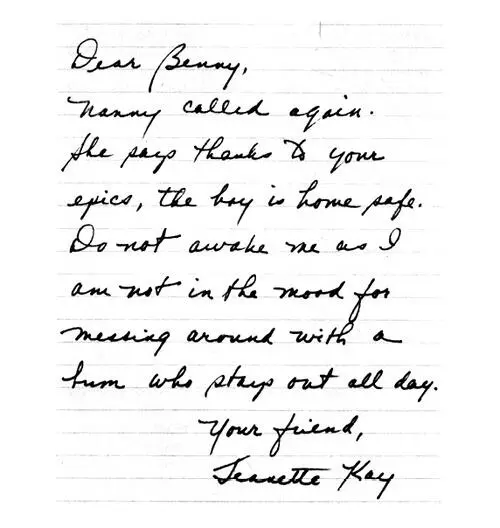 Dear Benny,
Nanny called again.
She says thanks to your
epics, the boy is home safe.
Do not awake me as I
am not in the mood for
messing around with a
bum who stays out all day.
Your friend,
Jeanette Kay